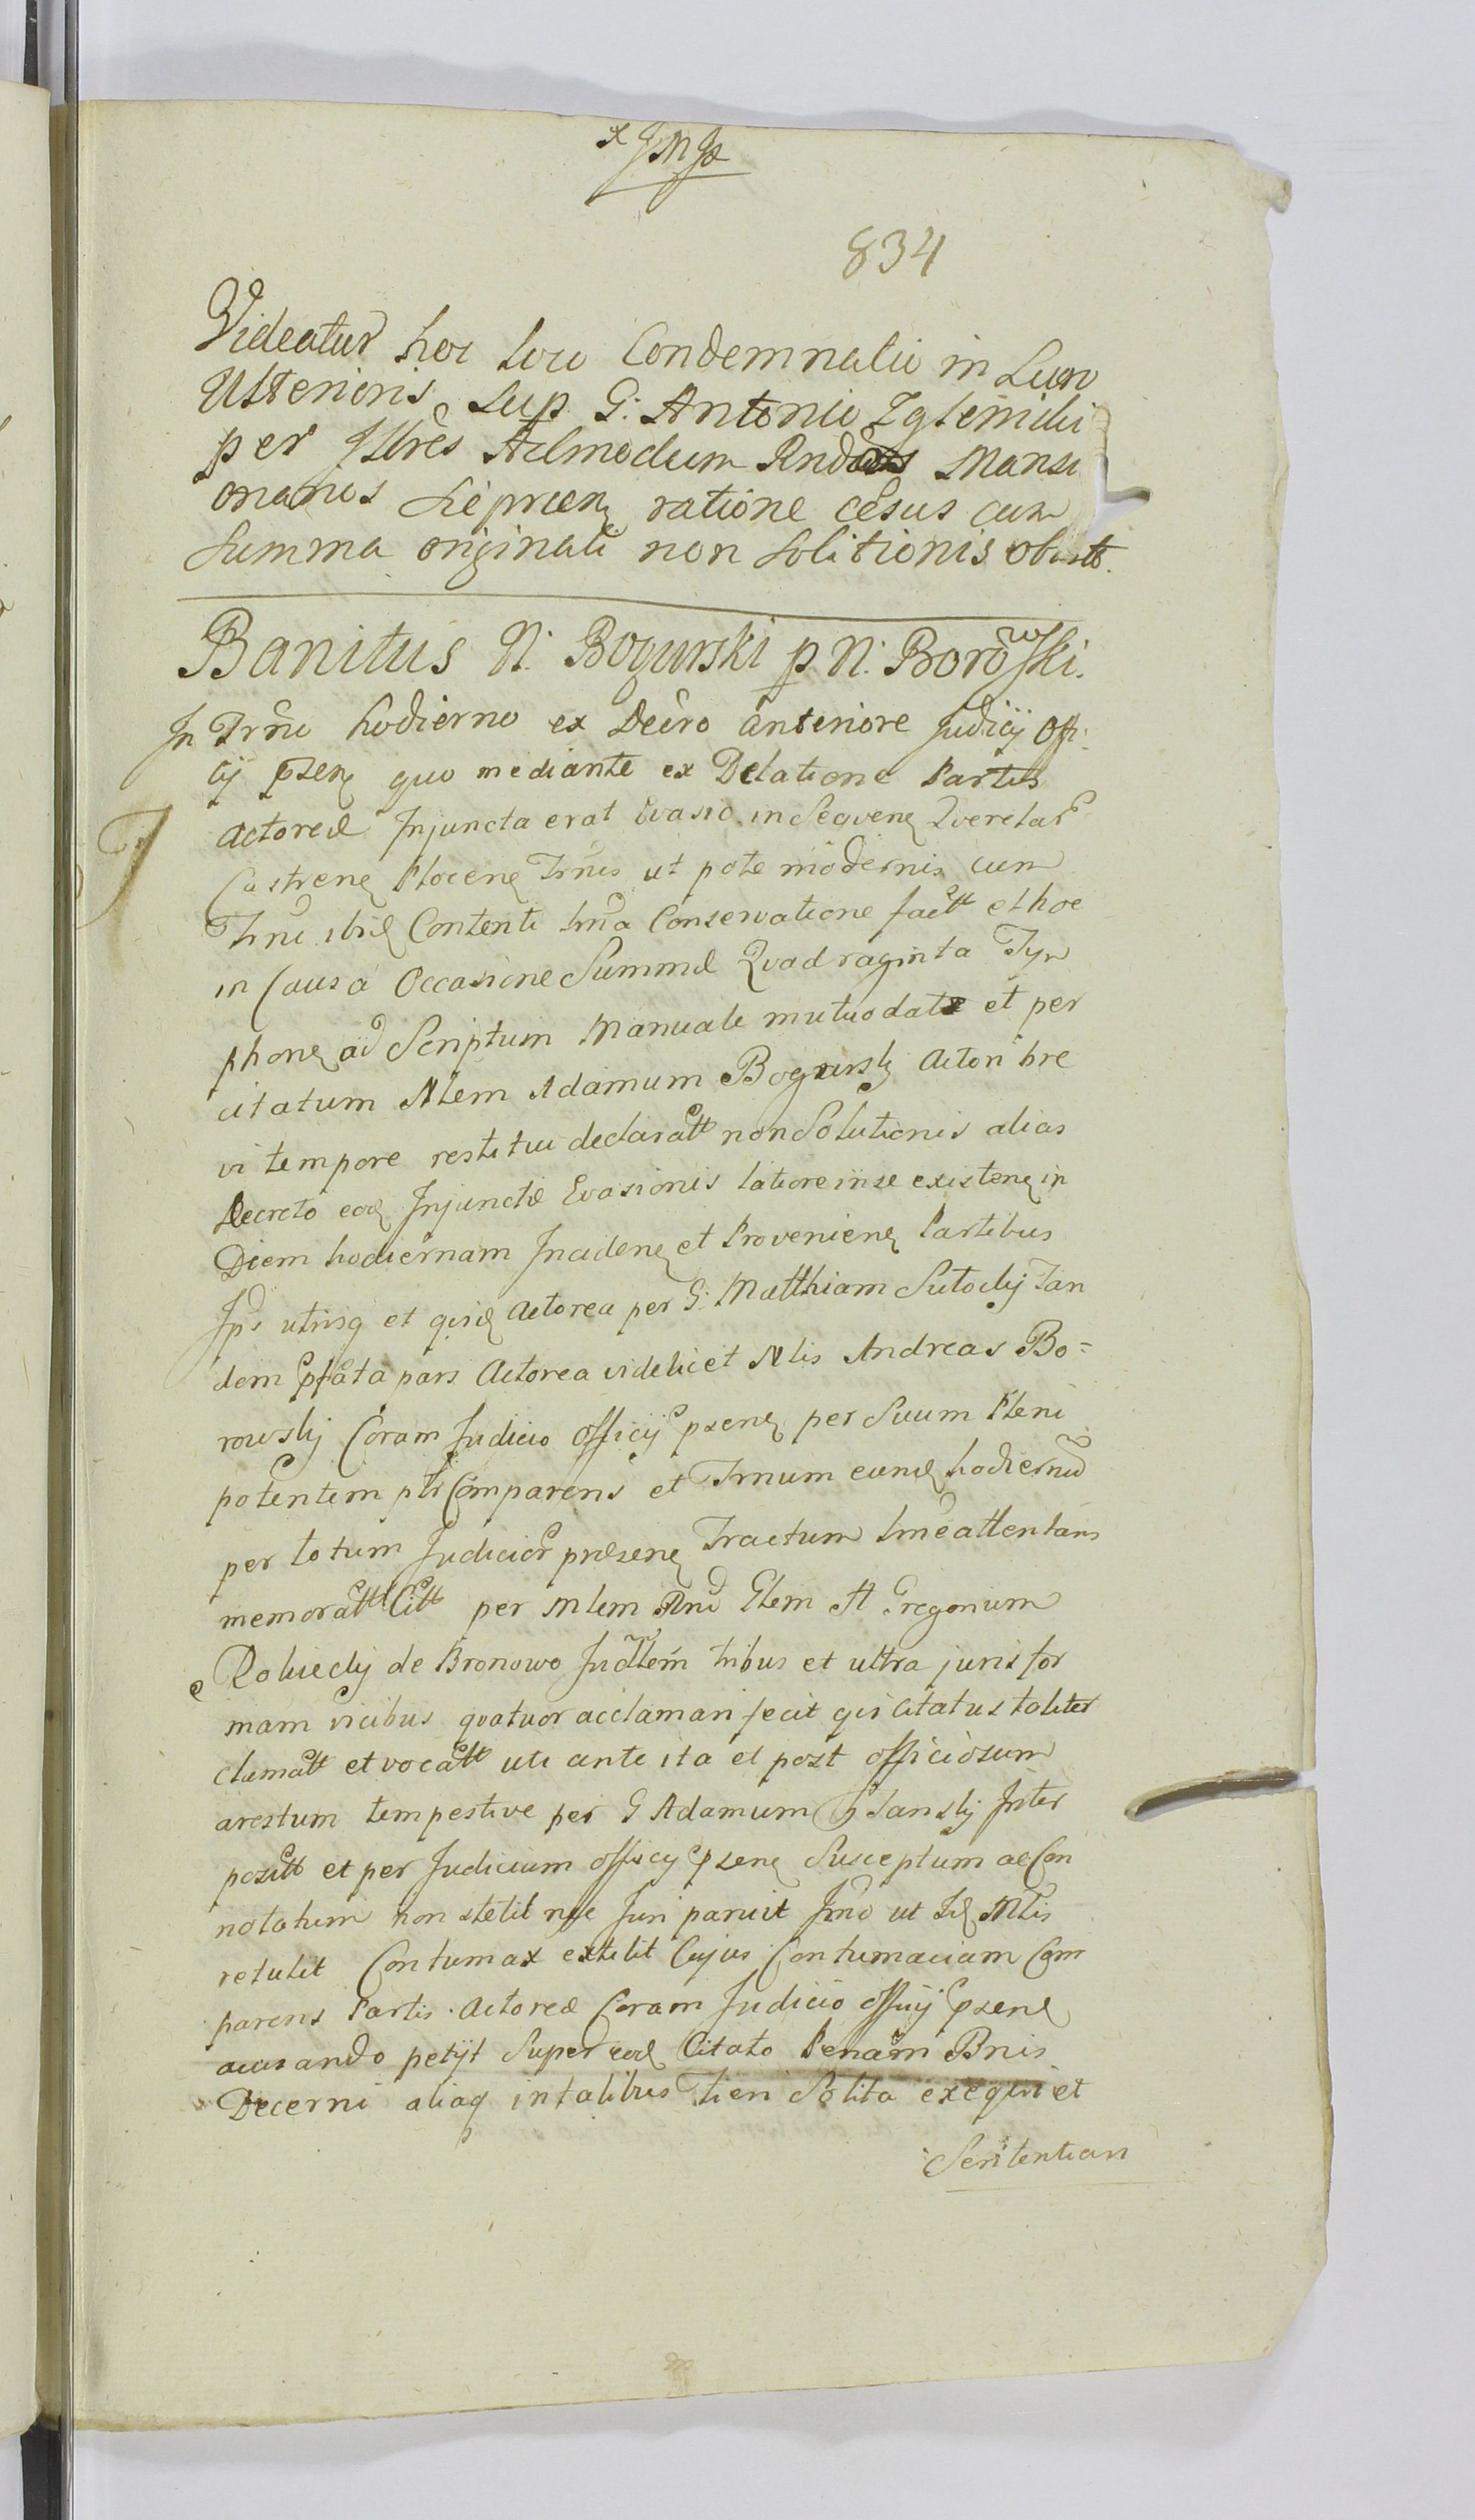 834
Videatur hoc loco Condemnatio in Lucro
Ulterioris Sup G: Antonio
per Illres Admodum Rndos Mansi
onarios ratione cesus cum
Summa originali non Solutionis obtt.
Banitus N: Bogurski p N: Borowski.
In Trno hodierno ex Decro anteriore Judicij Offi
cij psen quo mediante ex Delatione Partis
Actoreæ Injuncta erat Evasio in Sequen Querelar
Castren Plocen Trnis ut pote modernis cum
Trni ibid Contenti Conservatione factt et hoc
in Causa Occasione Summæ Quadraginta Tyn
phon ad Scriptum Manuale mutuo datæ et per
citatum Nlem Adamum Bogurski Actori bre
vi tempore restitui declaratt non Solutionis alias
Decreto eod Injunctæ Evasionis latiore in se existen in
Diem hodiernam Inciden et Provenien Partibus
Ips utrisq et qisd Actorea per G: Matthiam Tan
dem pfata pars Actorea videlicet Nlis Andreas Bo=
rowskj Coram Judicio Officij psen per Suum Pleni
potentem Comparens et Trnum eund hodiernu
per totum Judicior præsen Tractum attentans
memoratt Citt per Mlem Gregorium
de Bronowo tribus et ultra juris for
mam vicibus quatuor acclamari fecit qui Citatus taliter
clamatt et vocatt uti ante ita et post officiosum
arestum tempestive per G Adamum Inter
positt et per Judicium officij psen Susceptum ac Con
notatum non stetit nqe Juri paruit Imo ut Mlis
retulit Contumax extitit Cujus Contumaciam Com
parens Partis Actoreæ Coram Judicio officij psen
acusando petijt Super eod Citato Penam Bnis
Decerni aliaq in talibus fieri Solita exequi et
Sententiam